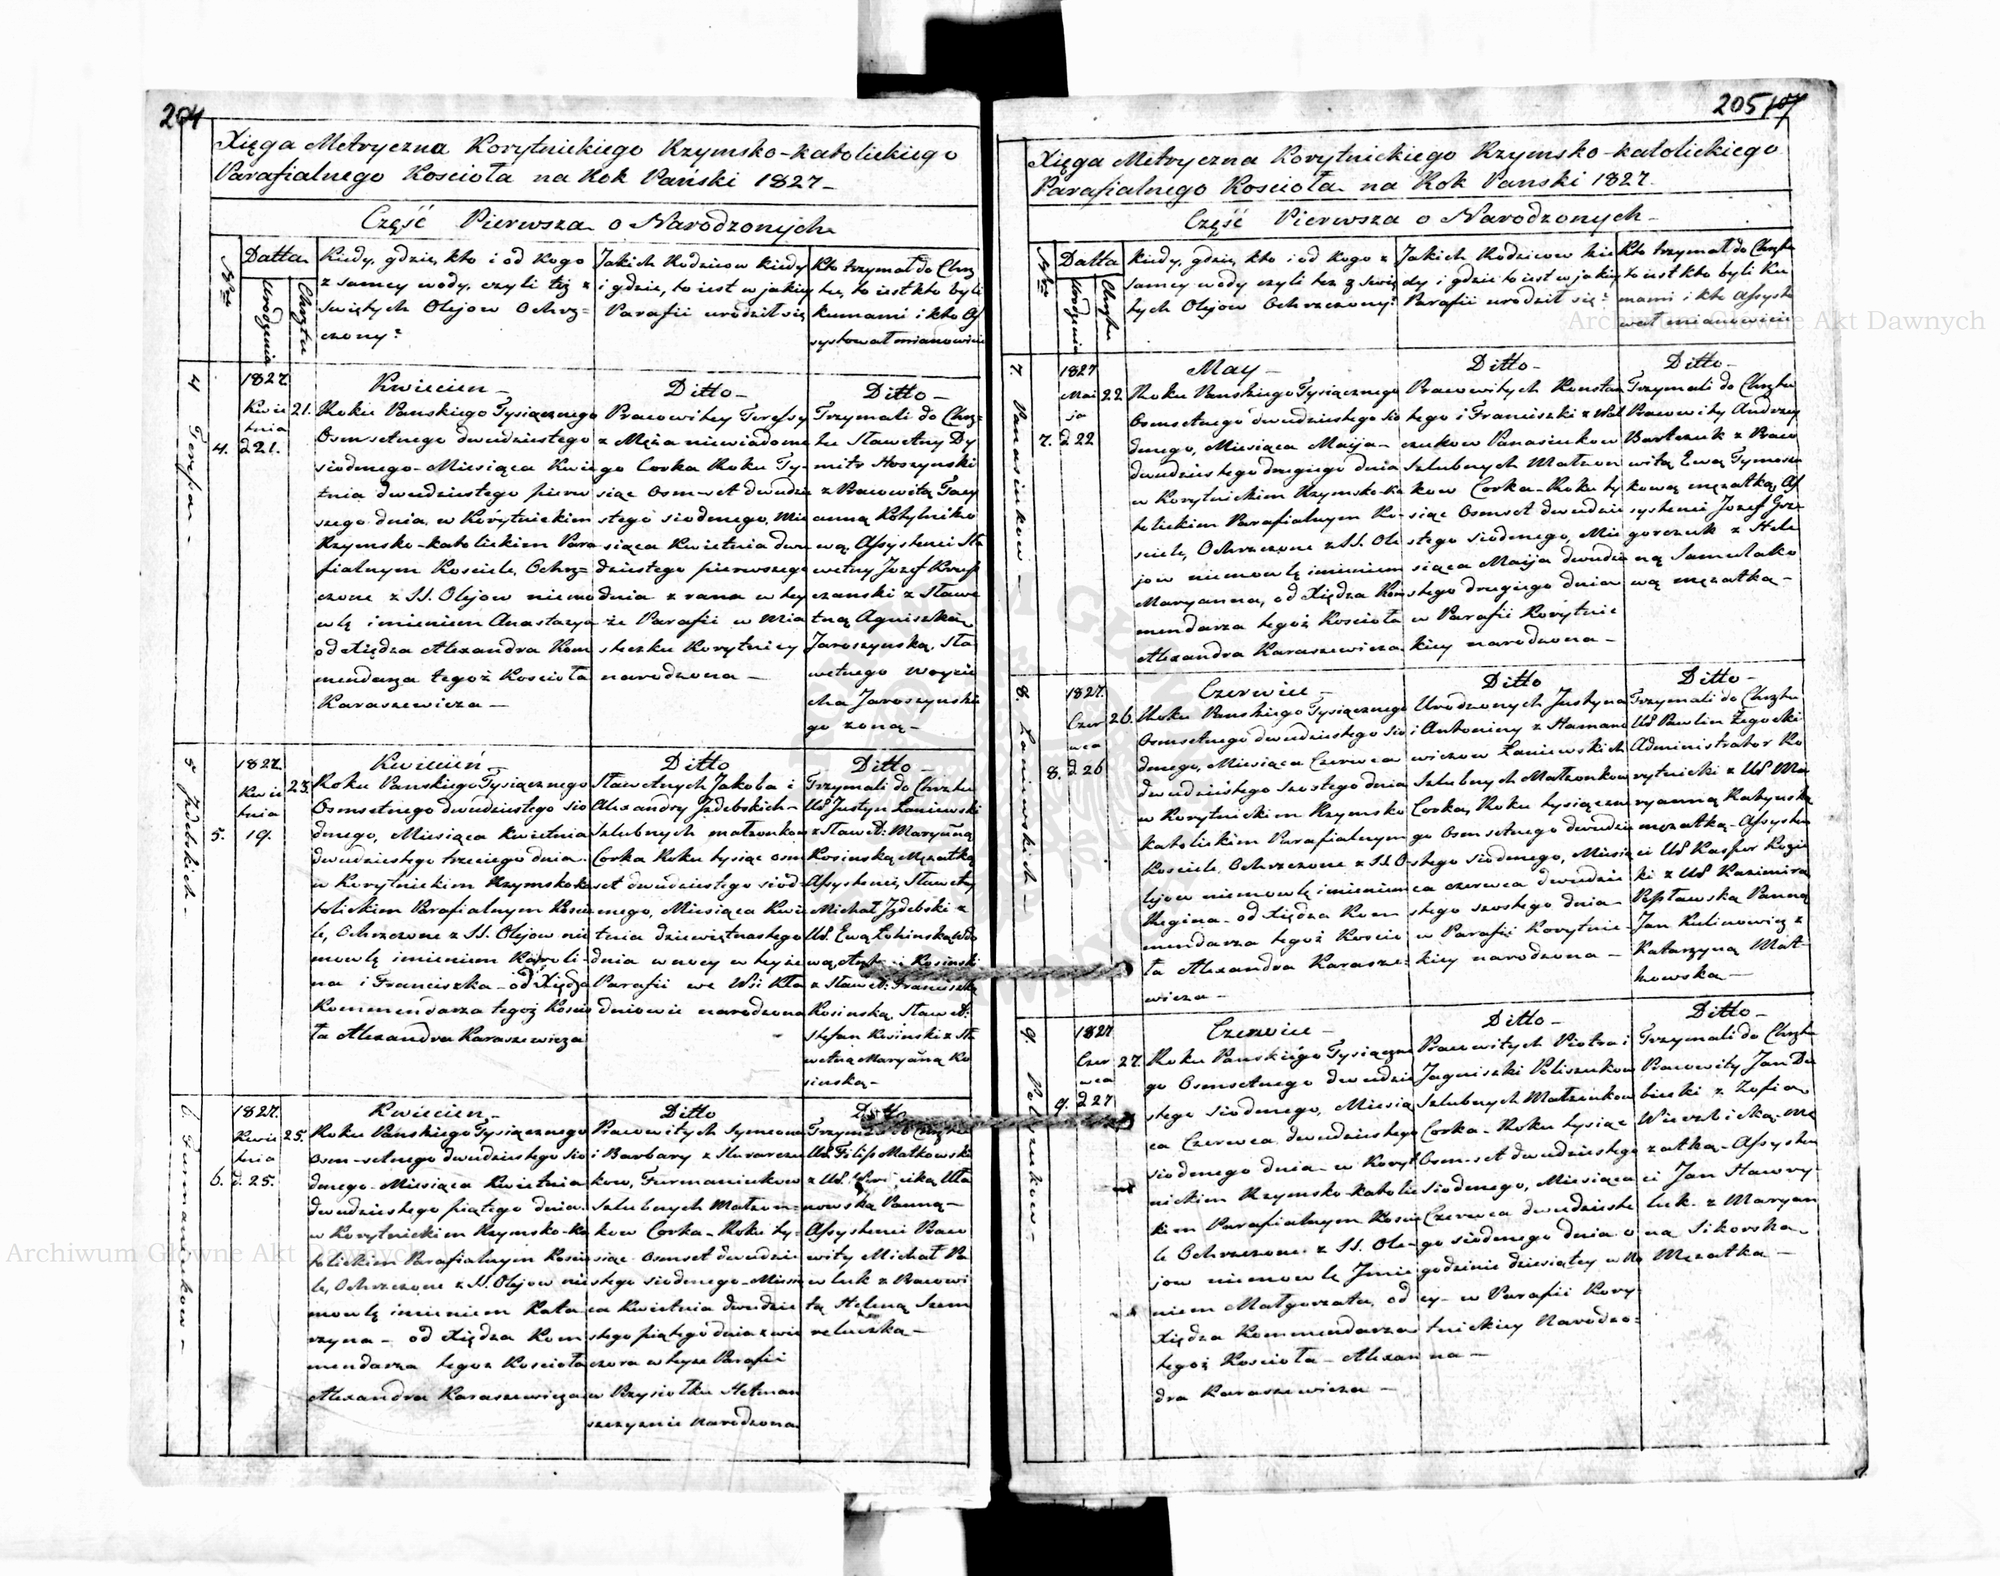 204
Xięga Metryczna Korytnickiego Rzymsko-katolickiego
Parafialnego Kościoła na Rok Pański 1827 –
Część Pierwsza o Narodzonych
Nro
Datta
Urodzenia
Chrztu
Kiedy, gdzie, kto i od kogo
z samey wody, czyli też z
Swiętych Olejow Ochrz=
czony?
Jakich Rodzicow kiedy
i gdzie, to iest w jakiey
Parafii urodził się
Kto trzymał do Chrz
tu, to iest kto byli
kumami i kto As
systował mianowicie
4 Teressa –
4.
1827
Kwie
tnia
d 21.
21.
Kwiecien –
Roku Panskiego Tysiącznego
Osmsetnego dwudziestego
siodmego – Miesiąca Kwie
tnia dwudziestego pierw
szego dnia w Korytnickim
Rzymsko-katolickim Para
fialnym Kosciele, Ochrz=
czone z SS. Olejow niemo
wlę imieniem Anastazya
od Xiędza Alexandra Kom
mendarza tegoż Kościoła
Karaszewicza –
Ditto –
Pracowitey Teressy
z Męża niewiadome
go Corka Roku Ty-
siąc Osm-set dwudzie
stego siodmego, Mie
siąca Kwietnia dwu
dziestego pierwszego
dnia z rana w tey
że Parafii w Mia
steczku Korytnicy
narodzona –
Ditto –
Trzymali do Chrz=
tu Sławetny Dy
mitr Hoszynski
z Pracowitą Taty
anną Kotylniko
wą, Assystenci Sła
wetny Jozef Krusz
czanski z Sławe
tną Agnieszką
Jaroszynską, Sła
wetnego Woycie
cha Jaroszynskie
go żoną –
5 Jzdebskich –
5.
1827.
Kwie
tnia
19.
23.
Kwiecień –
Roku Panskiego Tysiącznego
Osmsetnego dwudziestego sio
dmego, Miesiąca Kwietnia
dwudziestego trzeciego dnia
w Korytnickim Rzymskoka
tolickim Parafialnym Koscie
le, Ochrzczone z SS. Olejow nie
mowlę imieniem Karoli-
na i Franciszka – od Xiędza
Kommendarza tegoż Koscio
ła Alexandra Karaszewicza
Ditto
Sławetnych Jakoba i
Alexandry Jzdebskich –
Szlubnych małzonkow
Corka Roku tysiąc osm
set dwudziestego siod-
mego, Miesiąca Kwie
tnia dziewiętnastego
dnia w nocy w teyże
Parafii we Wsi Kła
dniowie narodzona
Ditto –
Trzymali do Chrztu
Ur Justyn Łaniewski
z Sławet: Maryanną
Kosinską Mężatką
Assystenci, Sławetny
Michał Jzdebski z
Ur. Ewą Łohinską wdo
wą, i Kosinski
z Sławet: Franciszką
Kosinską, Sławet:
Stefan Kosinski z Sła
wetną Maryanną Ko
sinską –
6 Furmaniukow –
6.
1827.
Kwie
tnia
d. 25.
25.
Kwiecien –
Roku Panskiego Tysiącznego
Osm-setnego dwudziestego sio
dmego Miesiąca Kwietnia
dwudziestego piątego dnia
w Korytnickim Rzymsko-ka
tolickim Parafialnym Koscie
le, Ochrzczone z SS. Olejow nie
mowlę imieniem Kata
rzyna – od Xiędza Kom
mendarza tegoz Kościoła
Alexandra Karaszewicza
Ditto
Pracowitych Symeona
i Barbary z
kow, Furmaniukow
Szlubnych Małzon-
kow Corka – Roku ty-
siąc Osmset dwudzie
stego siodmego – Miesi
ca Kwietnia dwudzie
stego piątego dnia z wie
czora w teyze Parafii
w Przysiołku Hetman
szczyznie Narodzona
Ditto
Trzymali do Chrztu
Ur. Filip Małkowski
z Ur.
nowską Panną –
Assystenci Praco
wity Michał Pa
wluk z Pracowi
tą Heleną Szem
reluczką –
205
107
Xięga Metryczna Korytnickiego Rzymsko-katolickiego
Parafialnego Kościoła na Rok Panski 1827.
Część Pierwsza o Narodzonych –
Nro
Datta
Urodzenia
Chrztu
Kiedy, gdzie, kto i od kogo z
samey wody czyli tez z Swię
tych Olejow Ochrzczony?
Jakich Rodzicow kie
dy i gdzie to iest w jakiey
Parafii urodził się?
Kto trzymał do Chrztu
to iest kto byli Ku
mami i kto Assysto
wał mianowicie
7 Panasiukow –
7.
1827
Mai
ja
d 22
22
May –
Roku Panskiego Tysiącznego
Osmsetnego dwudziestego sio
dmego, Miesiąca Maija –
dwudziestego drugiego dnia
w Korytnickim Rzymsko-ka
tolickim Parafialnym Ko-
sciele, Ochrzczone z SS. Ole
jow niemowlę imieniem
Maryanna, od Xiędza Kom
mendarza tegoż Kościoła
Alexandra Karaszewicza
Ditto –
Pracowitych Konstan
tego i Franciszki z Wał
czukow Panasiukow
Szlubnych Małzon
kow Corka – Roku ty
siąc Osmset dwudzie
stego siodmego, Mie
siąca Maija dwudzie
stego drugiego dnia
w Parafii Korytnic
kiey narodzona –
Ditto –
Trzymali do Chrztu
Pracowity Andrzey
Bartczuk z Praco
witą Ewą Tymosza
kową mężatką As
systenci Jozef Grze
gorczuk z Hele
ną Samulako
wą mężatką –
8. Łaniewskich –
8.
1827.
Czer
wca
d 26
26.
Czerwiec –
Roku Panskiego Tysiącznego
Osmsetnego dwudziestego sio
dmego, Miesiąca Czerwca
dwudziestego szostego dnia
w Korytnickim Rzymsko
katolickim Parafialnym
Kosciele, Ochrzczone z SS. O-
lejow niemowlę imieniem
Regina – od Xiędza Kom
mendarza tegoż Koscio
ła Alexandra Karasze=
wicza –
Ditto
Urodzonych Justyna
i Antoniny z Hamano
wiczow Łaniewskich
Szlubnych Małzonkow
Corka, Roku tysiączne
go Osmsetnego dwudzie
stego siodmego, Miesią
ca czerwca dwudzie
stego szostego dnia
w Parafii Korytnic
kiey narodzona –
Ditto –
Trzymali do Chrztu
Ur Pawlin Żegocki
Administrator Ko
rytnicki z Ur Ma
ryanną Katynską
mężatką – Assysten
ci Ur Kasper Rogie
ki z Ur Kazimirą
Pepławską Panną
Jan Kulinowicz z
Katarzyną Mał-
kowską –
9. Poliszukow –
9.
1827
Czer
wca
d 27
27.
Czerwiec –
Roku Panskiego Tysiączne
go Osmsetnego dwudzie
stego siodmego, Miesią
ca Czerwca dwudziestego
siodmego dnia – w Koryt
nickim Rzymsko-katolic
kim Parafialnym Koscie
le Ochrzczone z SS. Ole-
jow niemowlę Jmie
niem Małgorzata, od
Xiędza Kommendarza
tegoż Kościoła – Alexan
dra Karaszewicza –
Ditto –
Pracowitych Piotra i
Jagnieszki Poliszukow
Szlubnych Małzonkow
Corka – Roku tysiąc
Osm-set dwudziestego
Siodmego, Miesiąca
Czerwca dwudzieste
go siodmego dnia o
godzinie dziesiątey w No
cy – w Parafii Kory-
tnickiey Narodzo=
na –
Ditto –
Trzymali do Chrztu
Pracowity Jan Du
bicki z Zofią
Wierzbicką Mę
zatką – Assysten
ci Jan Hawry-
luk z Maryan
ną Sikorską
Mężatką –
Archiwum Główne Akt Dawnych
Archiwum Główne Akt Dawnych